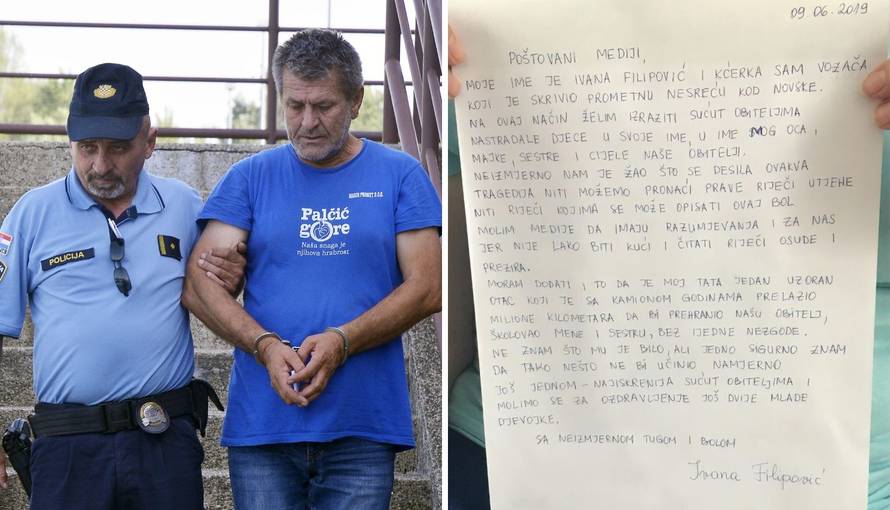 POLICIJA
BOSNA PROMET D.O.O.
Palčić
gore
Naša snaga je
njihova hrabrost
09.06.2019
POŠTOVANI MEDIJI,
MOJE IME JE IVANA FILIPOVIĆ I KĆERKA SAM VOZAČA
KOJI JE SKRIVIO PROMETNU NESREĆU KOD NOVSKE.
NA OVAJ NAČIN ŽELIM IZRAZITI SUĆUT OBITELJIMA
NASTRADALE DJECE U SVOJE IME, U IME MOG OCA,
MAJKE, SESTRE I CIJELE NAŠE OBITELJI.
NEIZMJERNO NAM JE ŽAO ŠTO SE DESILA OVAKVA
TRAGEDIJA NITI MOŽEMO PRONAĆI PRAVE RIJEČI UTJEHE
NITI RIJEČI KOJIMA SE MOŽE OPISATI OVAJ BOL
MOLIM MEDIJE DA IMAJU RAZUMJEVANJA I ZA NAS
JER NIJE LAKO BITI KUĆI I ČITATI RIJEČI OSUDE I
PREZIRA.
MORAM DODATI I TO DA JE MOJ TATA JEDAN UZORAN
OTAC KOJI JE SA KAMIONOM GODINAMA PRELAZIO
MILIONE KILOMETARA DA BI PREHRANIO NAŠU OBITELJ,
ŠKOLOVAO MENE I SESTRU, BEZ IJEDNE NEZGODE.
NE ZNAM ŠTO MU JE BILO, ALI JEDNO SIGURNO ZNAM
DA TAKO NEŠTO NE BI UČINIO NAMJERNO
JOŠ JEDNOM - NAJISKRENIJA SUĆUT OBITELJIMA I
MOLIMO SE ZA OZDRAVLJENJE JOŠ DVIJE MLADE
DJEVOJKE.
SA NEIZMJERNOM TUGOM I BOLOM
Ivana Filipović